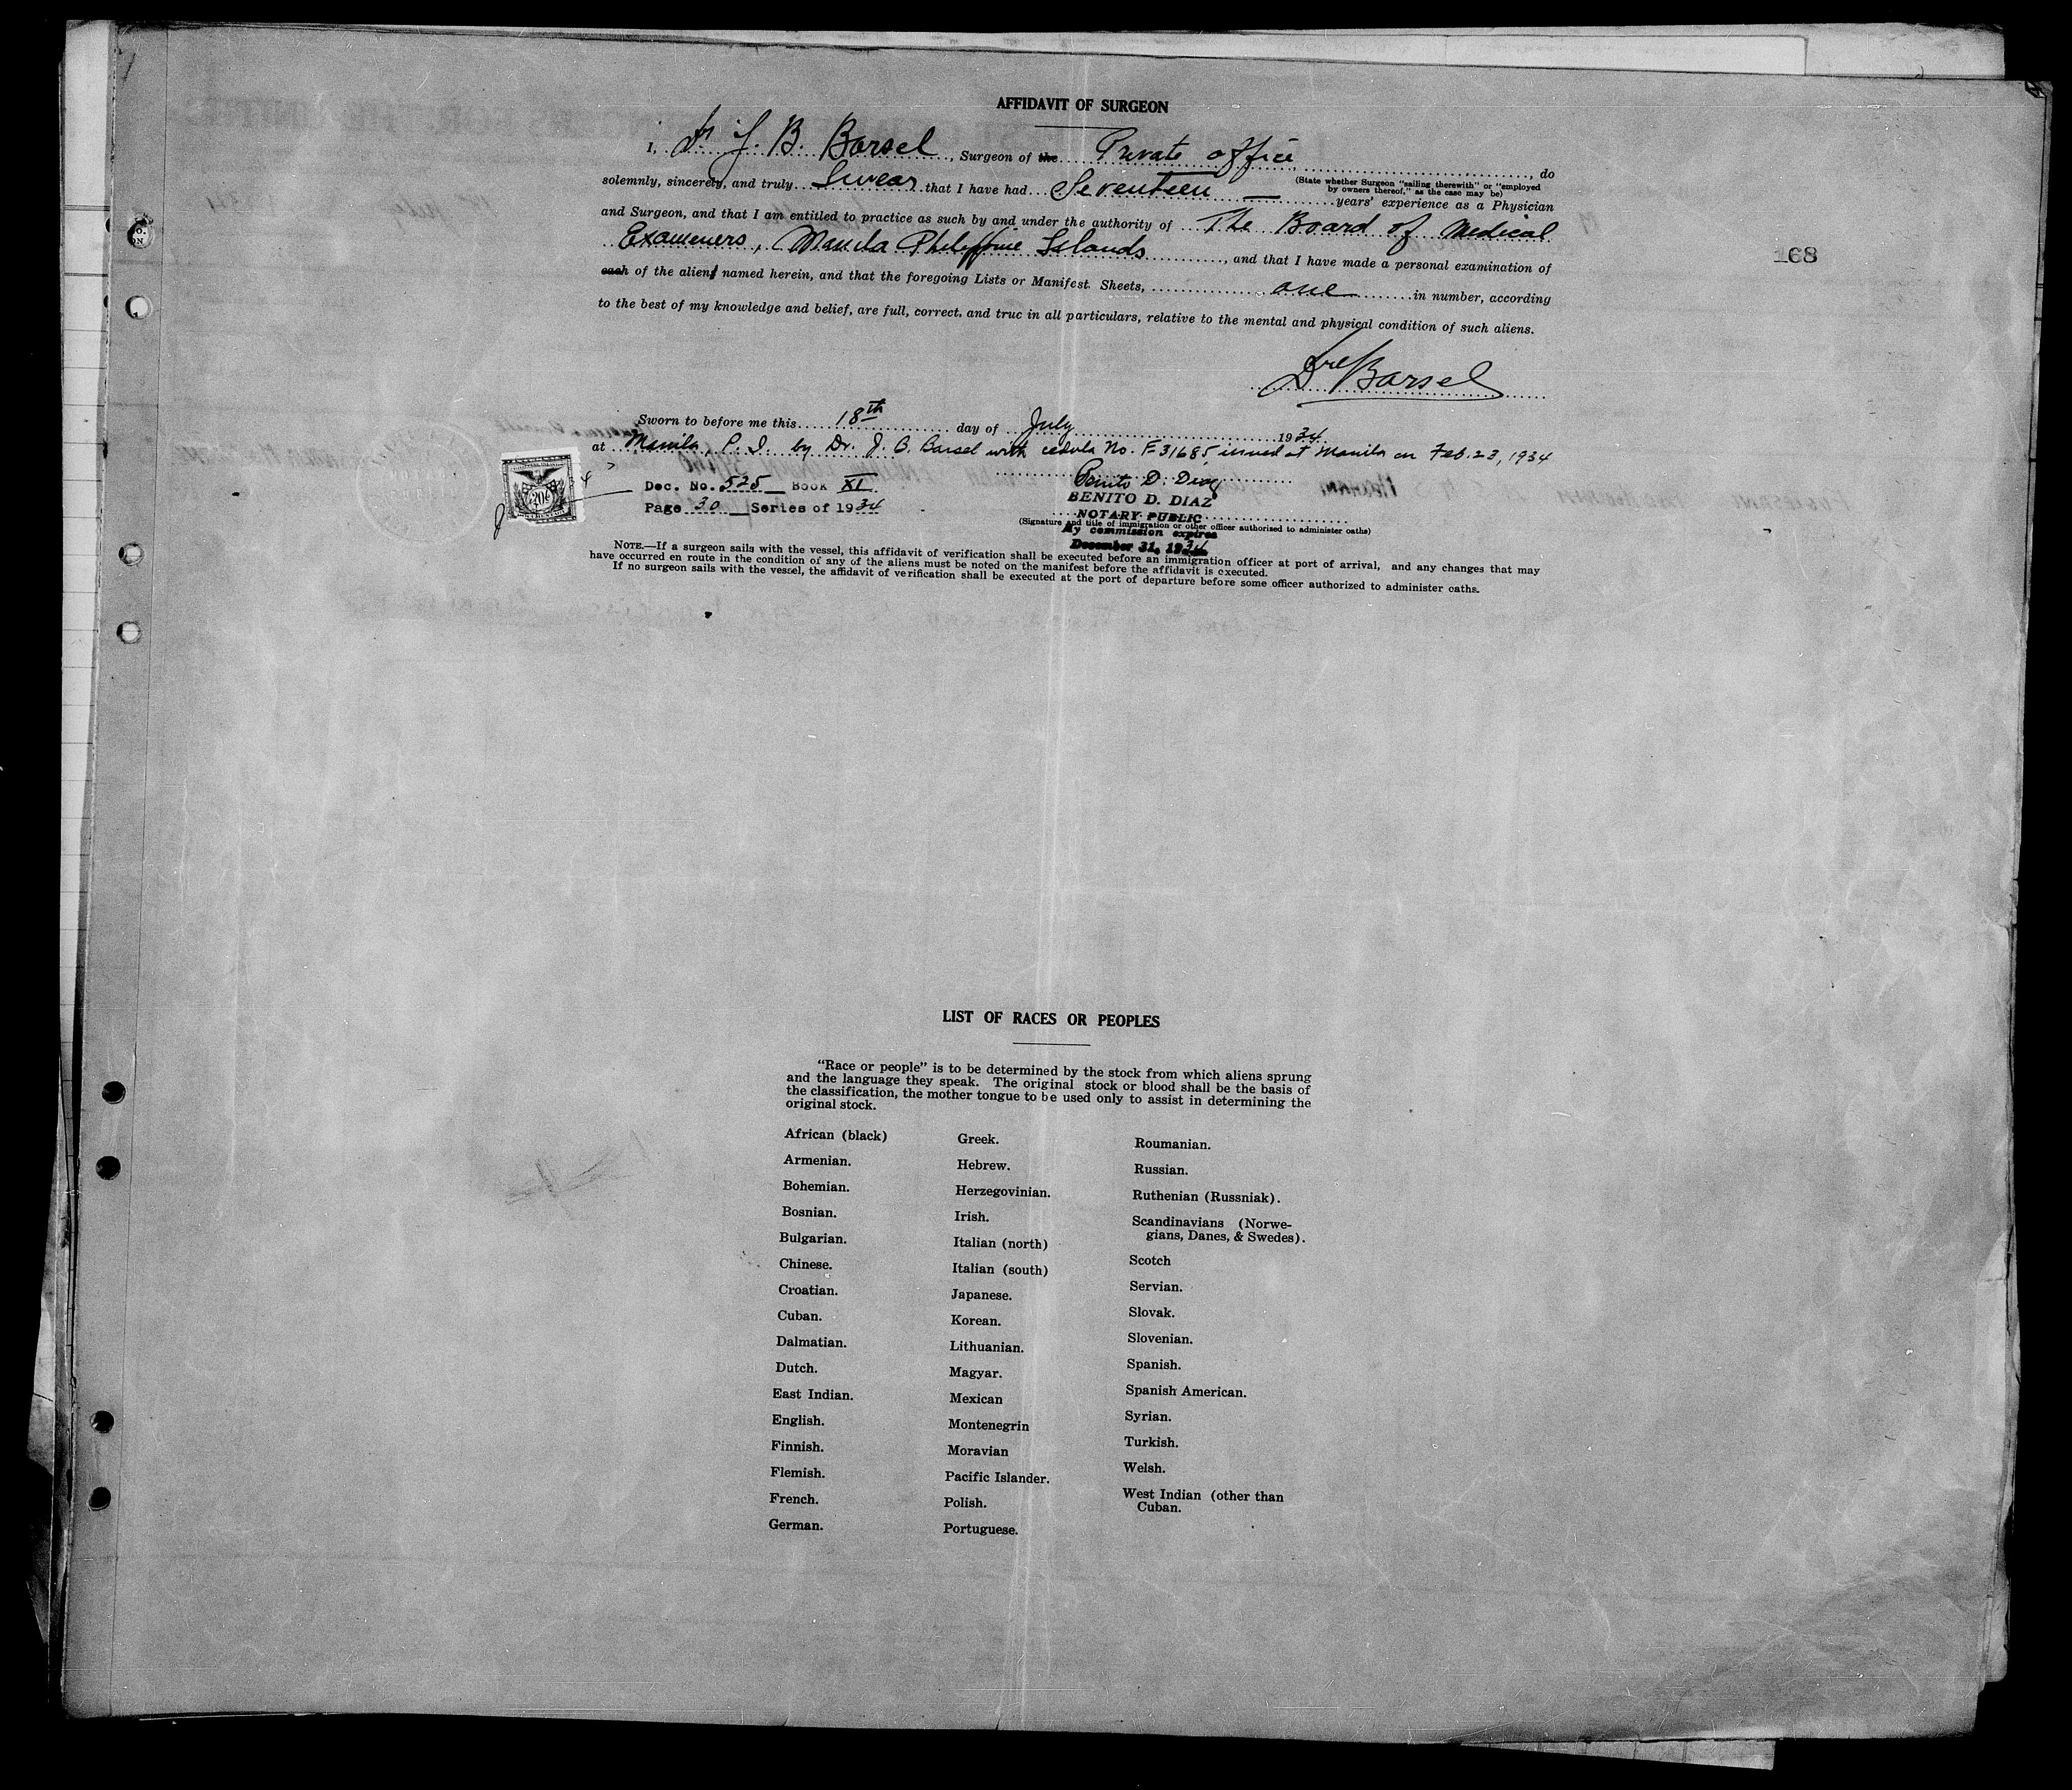 AFFIDAVIT OF SURGEON
I, Dr J. B. Barsel, Surgeon of the Private office, do
(State whether Surgeon "sailing therewith" or "employed
by owners thereof," as the case may be)
solemnly, sincerely, and truly Swear that I have had Seventeen — years' experience as a Physician
and Surgeon, and that I am entitled to practice as such by and under the authority of The Board of Medical
Examiners, Manila Philippine Islands, and that I have made a personal examination of
each of the alien named herein, and that the foregoing Lists or Manifest Sheets, one in number, according
to the best of my knowledge and belief, are full, correct. and true in all particulars, relative to the mental and physical condition of such aliens.
Dr Barsel
Sworn to before me this 18th day of July 1934
at Manila, P. I. by Dr. J. B. Barsel with cedula No. F-31685 issued at Manila on Feb. 23, 1934
Benito D. Diaz
Doc. No. 525 Book XI
BENITO D. DIAZ
Page 30 Series of 1934
NOTARY PUBLIC
(Signature and title of immigration or other officer authorized to administer oaths)
My commission expires
December 31, 1934
20c
168
NOTE.—If a surgeon sails with the vessel, this affidavit of verification shall be executed before an immigration officer at port of arrival, and any changes that may
have occurred en route in the condition of any of the aliens must be noted on the manifest before the affidavit is executed.
If no surgeon sails with the vessel, the affidavit of verification shall be executed at the port of departure before some officer authorized to administer oaths.
LIST OF RACES OR PEOPLES
"Race or people" is to be determined by the stock from which aliens sprung
and the language they speak. The original stock or blood shall be the basis of
the classification, the mother tongue to be used only to assist in determining the
original stock.
African (black)
Armenian.
Bohemian.
Bosnian.
Bulgarian.
Chinese.
Croatian.
Cuban.
Dalmatian.
Dutch.
East Indian.
English.
Finnish.
Flemish.
French.
German.
Greek.
Hebrew.
Herzegovinian.
Irish.
Italian (north)
Italian (south)
Japanese.
Korean.
Lithuanian.
Magyar.
Mexican
Montenegrin
Moravian
Pacific Islander.
Polish.
Portuguese.
Roumanian.
Russian.
Ruthenian (Russniak).
Scandinavians (Norwe-
gians, Danes, & Swedes).
Scotch
Servian.
Slovak.
Slovenian.
Spanish.
Spanish American.
Syrian.
Turkish.
Welsh.
West Indian (other than
Cuban.